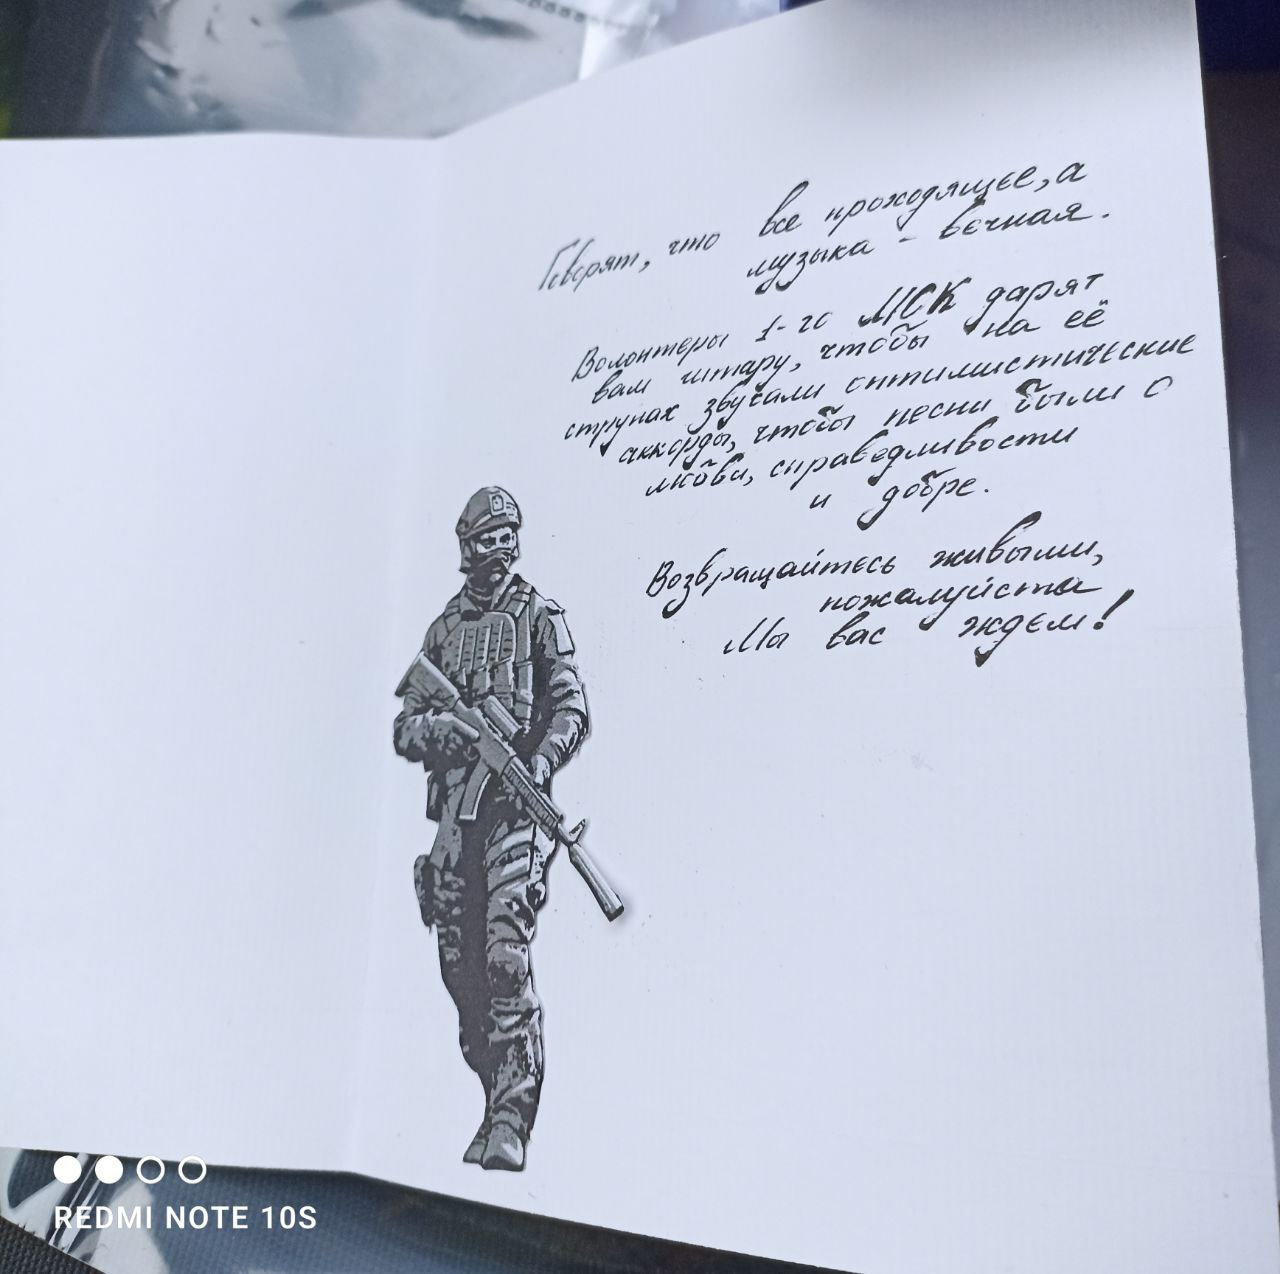 Говорят, что все проходящее, а
музыка - вечная.
Волонтеры 1-го МСК дарят
вам гитару, чтобы на её
струнах звучали оптимистические
аккорды, чтобы песни были о
любви, справедливости
и добре.
Возвращайтесь живыми,
пожалуйста
Мы вас ждем!
REDMI NOTE 10S